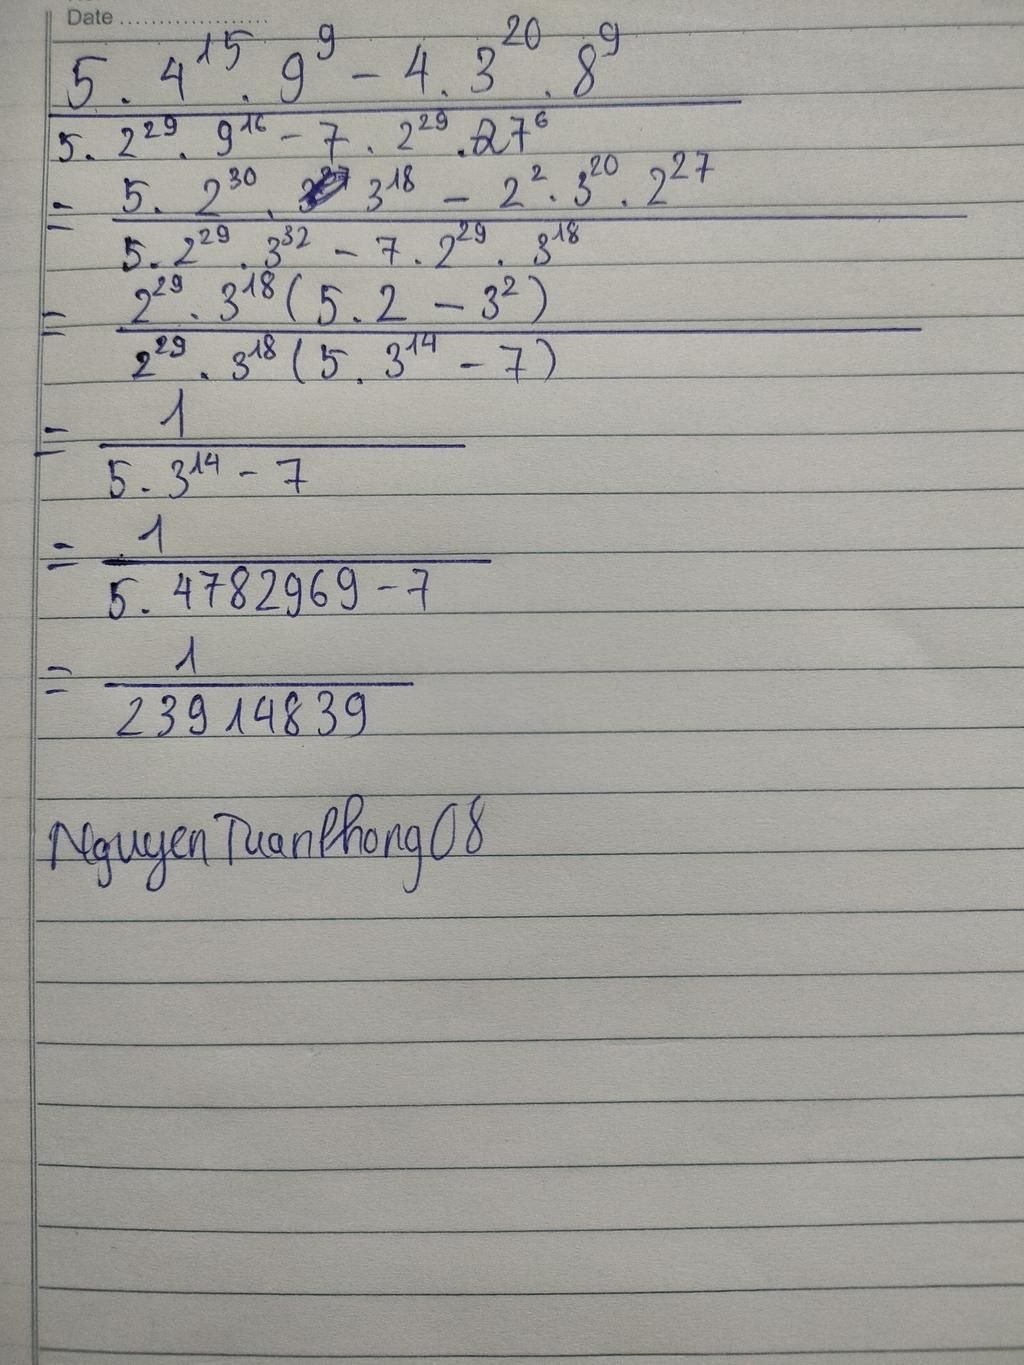 Date ....................
5 . 4^15 . 9^9 - 4 . 3^20 . 8^9
5 . 2^29 . 9^16 - 7 . 2^29 . 27^6
= 5 . 2^30 . 3^18 - 2^2 . 3^20 . 2^27
5 . 2^29 . 3^32 - 7 . 2^29 . 3^18
= 2^29 . 3^18 ( 5 . 2 - 3^2 )
2^29 . 3^18 ( 5 . 3^14 - 7 )
= 1
5 . 3^14 - 7
= 1
5 . 4782969 - 7
= 1
23914839
NguyenTuanPhong08